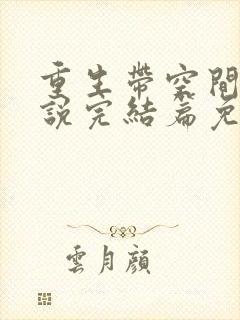 重生帶空間
說完結篇免
雲月顏